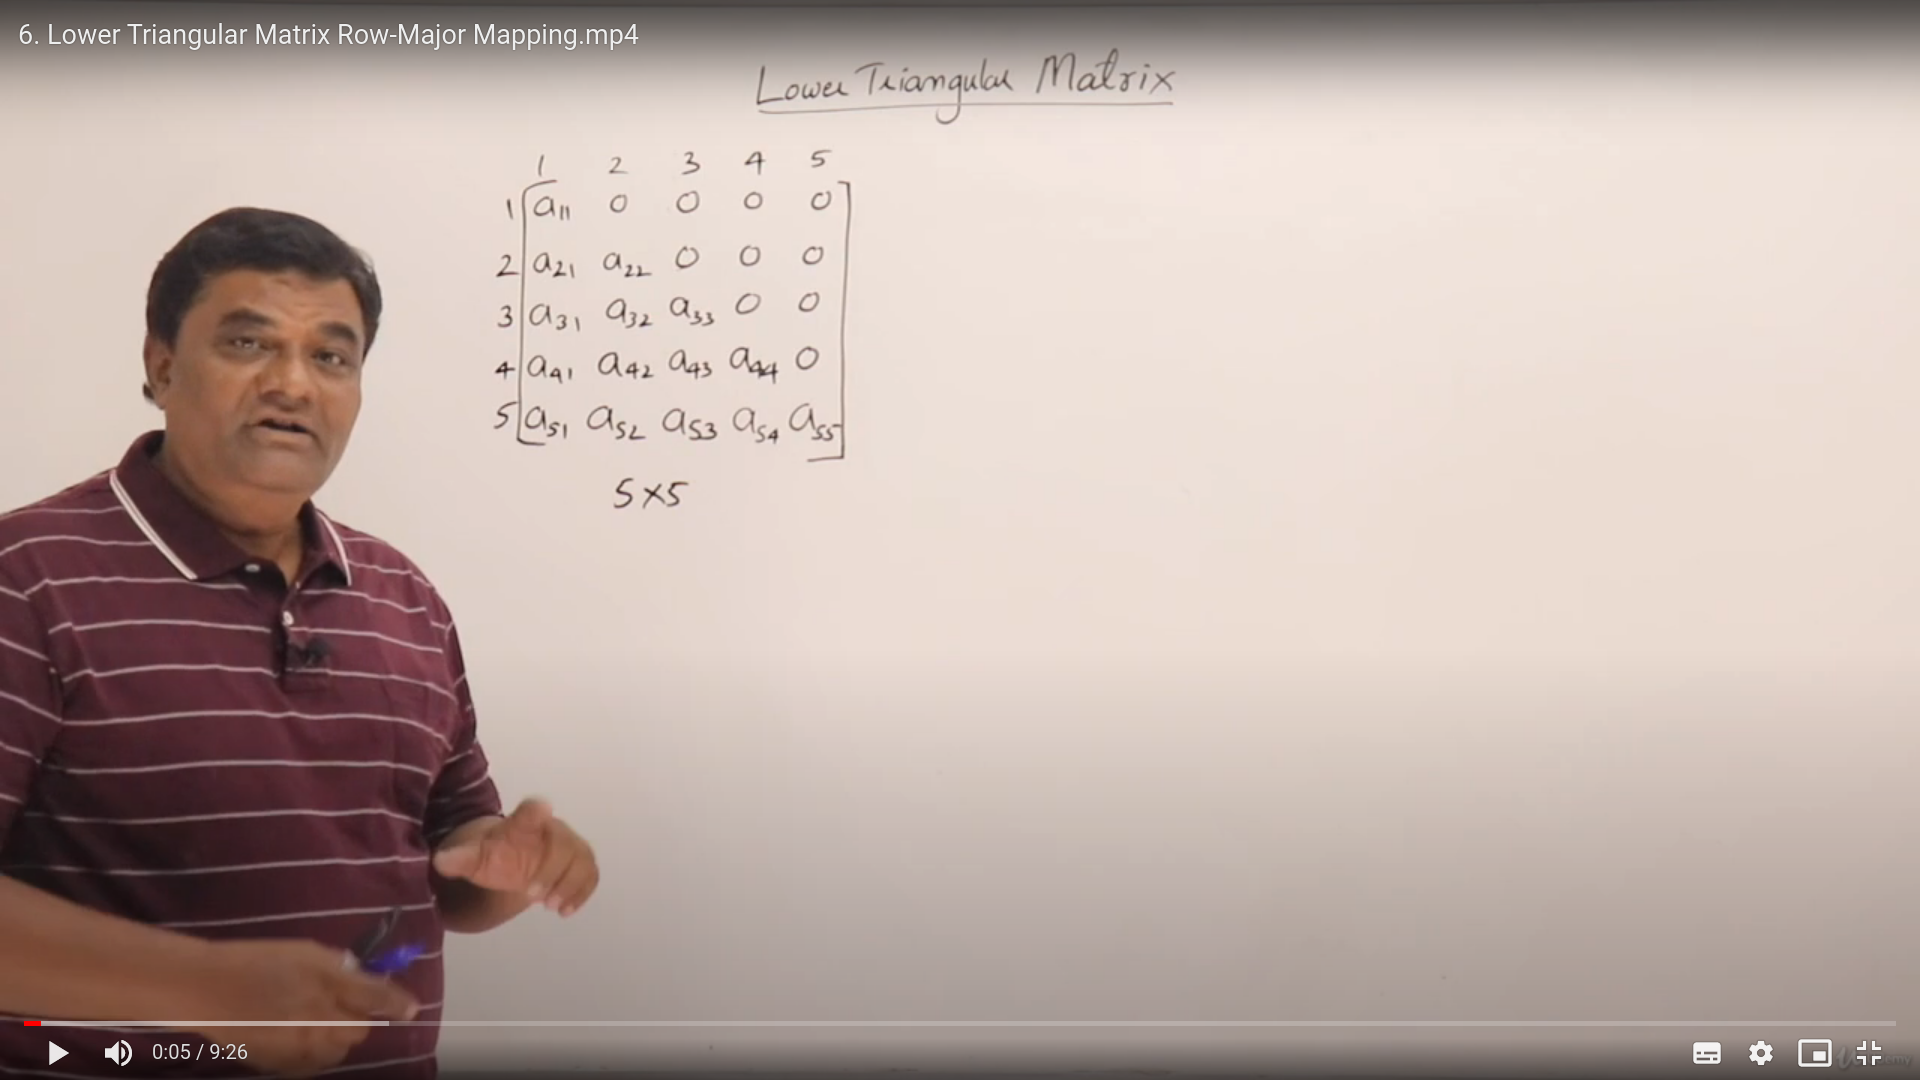 6. Lower Triangular Matrix Row-Major Mapping.mp4
Lower Triangular Matrix
1 2 3 4 5
1 a11 0 0 0 0
2 a21 a22 0 0 0
3 a31 a32 a33 0 0
4 a41 a42 a43 a44 0
5 a51 a52 a53 a54 a55
5×5
0:05 / 9:26